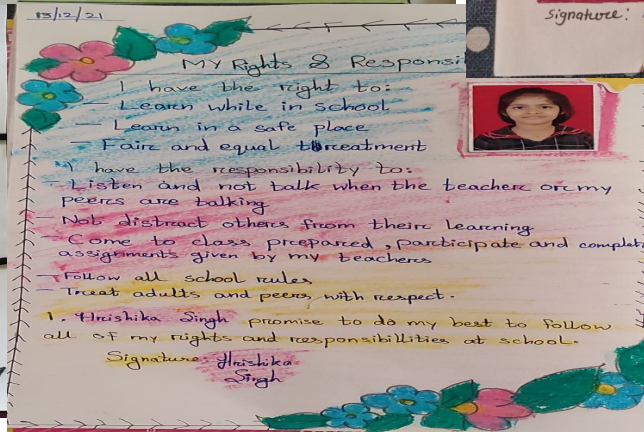 13/12/21
Signature:
My Rights & Responsi
I have the right to:-
- Learn while in school
- Learn in a safe place
- Fair and equal treatment
I have the responsibility to:
- Listen and not talk when the teacher or my
peers are talking
- Not distract others from their learning
- Come to class prepared, participate and complet
assignments given by my teachers
- Follow all school rules
- Treat adults and peers with respect.
I. Hrishika Singh promise to do my best to follow
all of my rights and responsibillities at school.
Signature Hrishika
Singh